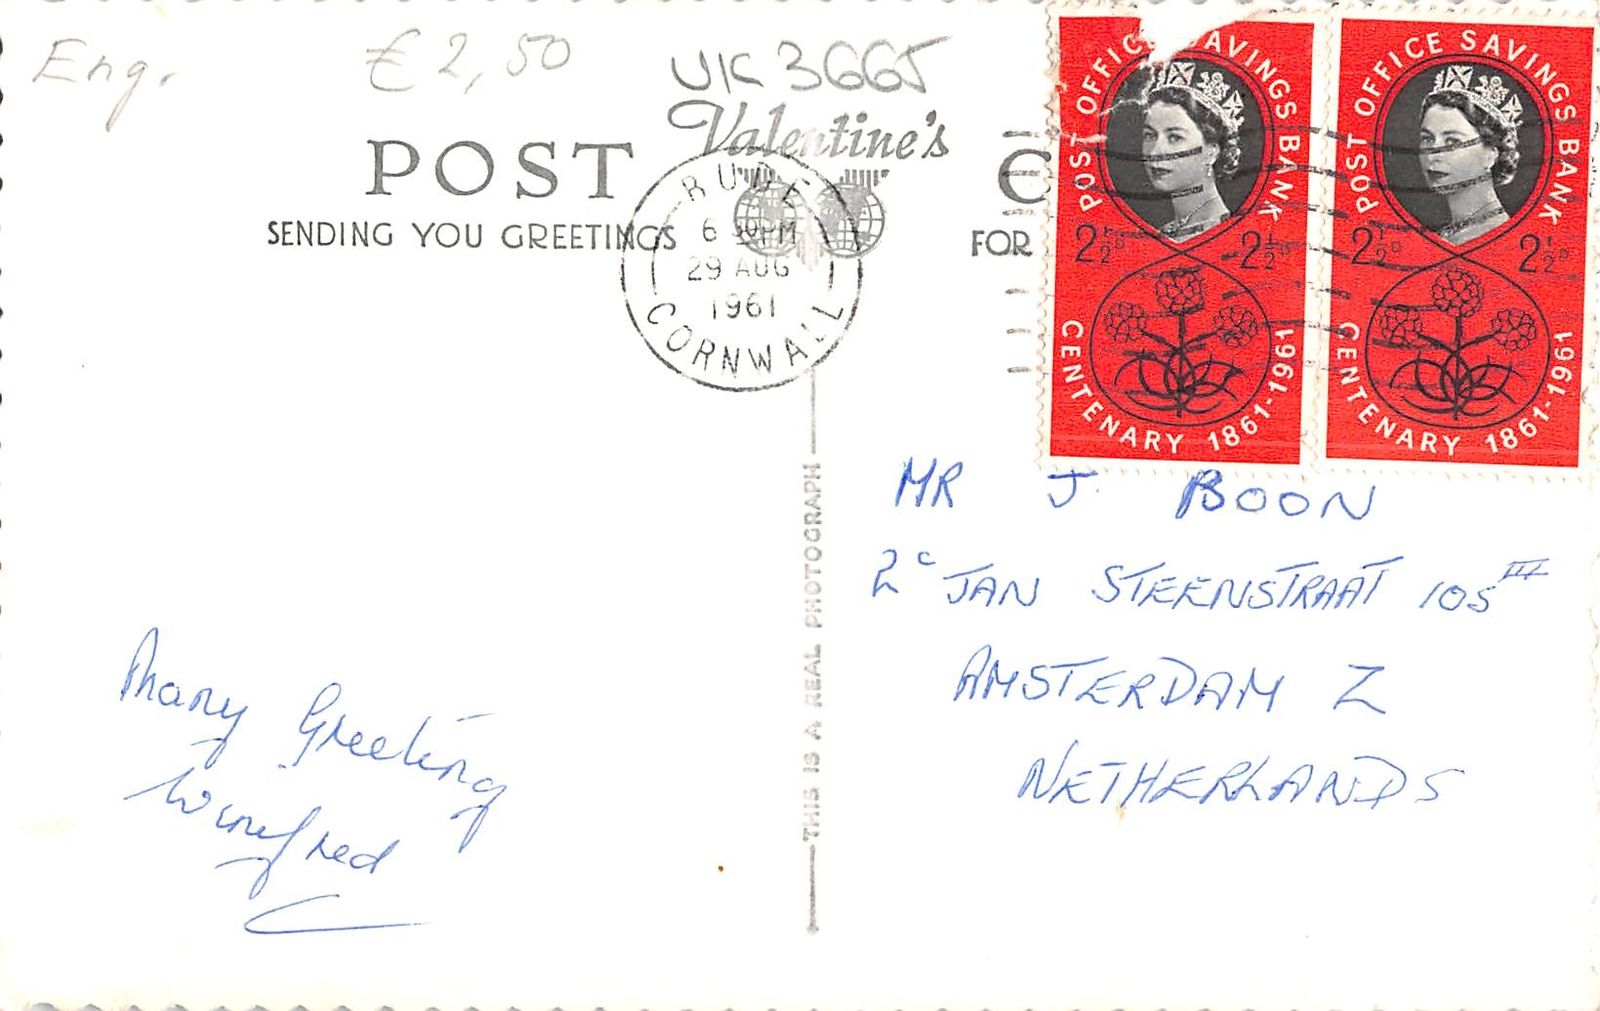 Eng. € 2,50 UK 3665
Valentine's
POST
SENDING YOU GREETINGS
FOR
BUDE
6 30PM
29 AUG
1961
CORNWALL
POST OFFICE SAVINGS BANK
2½D 2½D
CENTENARY 1861-1961
POST OFFICE SAVINGS BANK
2½D 2½D
CENTENARY 1861-1961
MR J. BOON
2e JAN STEENSTRAAT 105 III
AMSTERDAM Z
NETHERLANDS
THIS IS A REAL PHOTOGRAPH
Many Greeting
Winefred